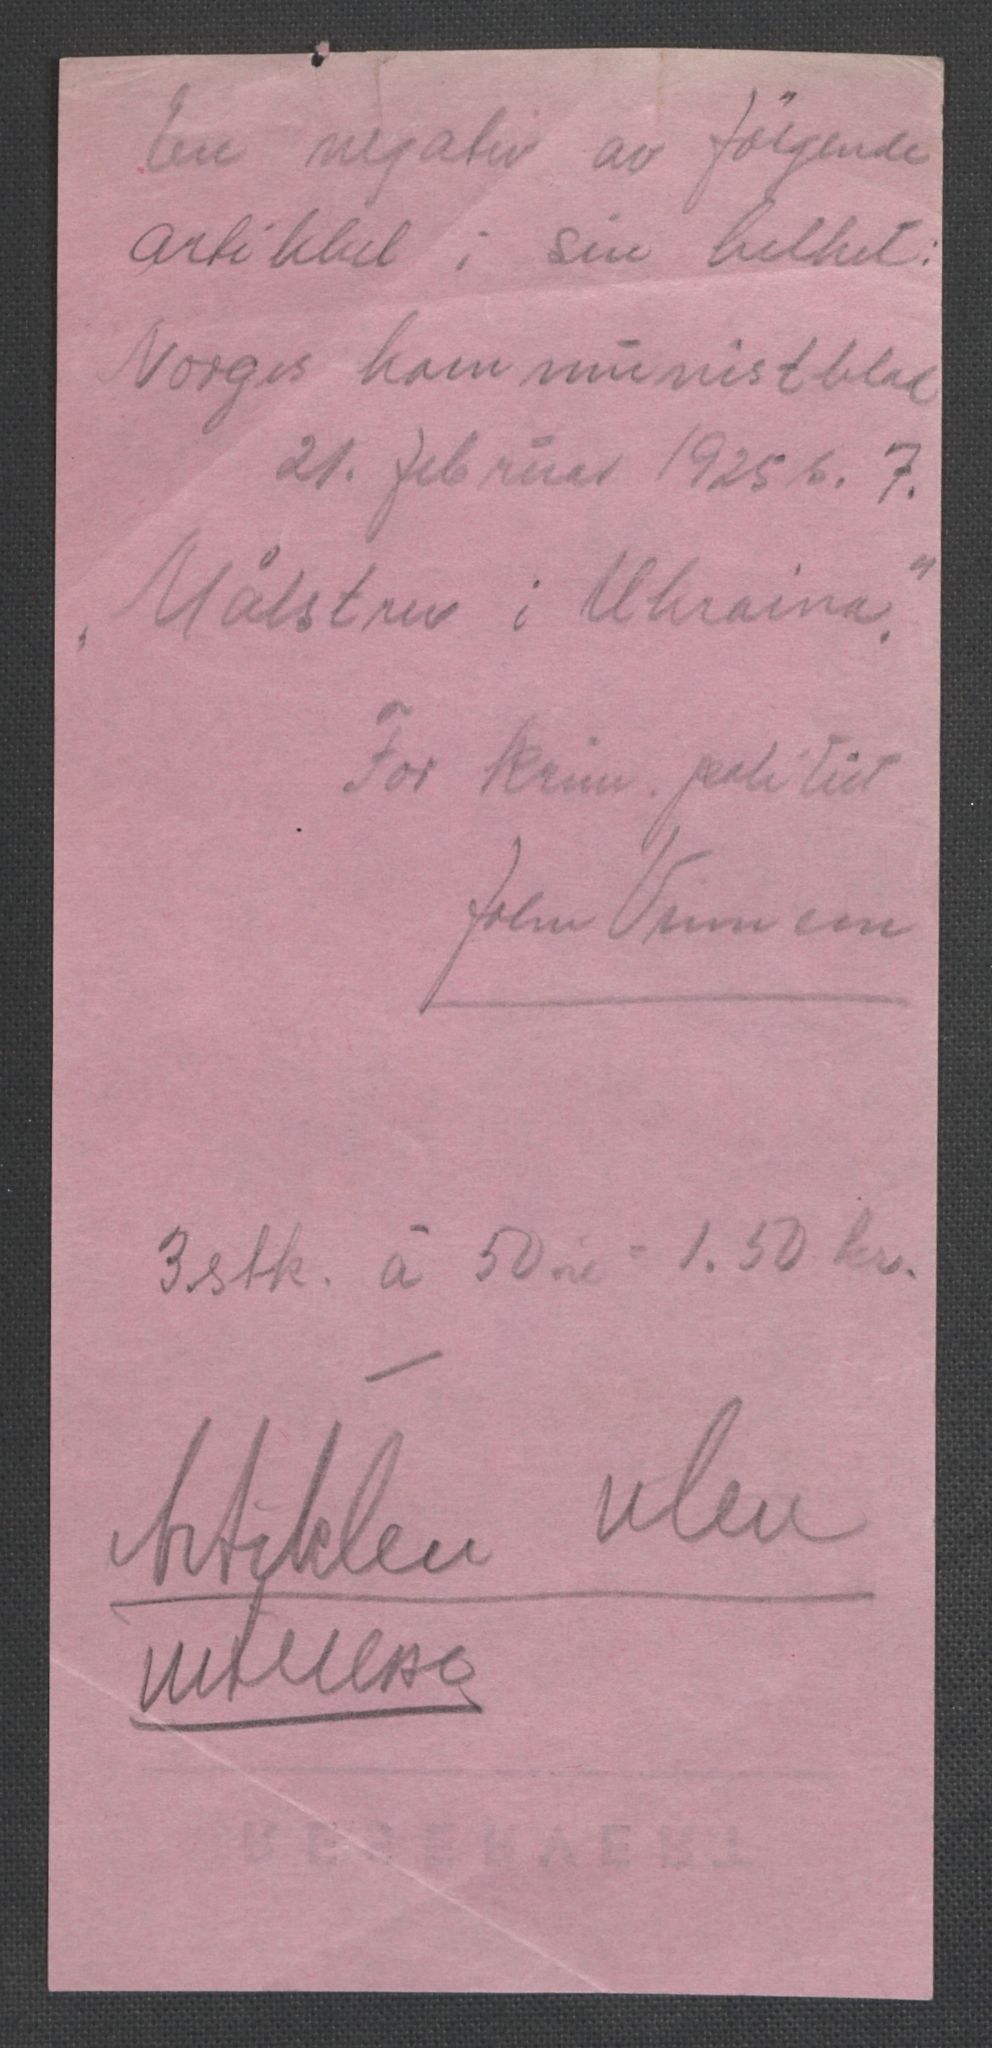 En negativ av følgende
artikkel i sin helhet:
Norges kommunistblad
21. februar 1925 s. 7.
"Målstrev i Ukraina."
For krim. politiet
John
3 stk. à 50 øre = 1.50 kr.
—
Artiklen uten
interesse
RESERVERT